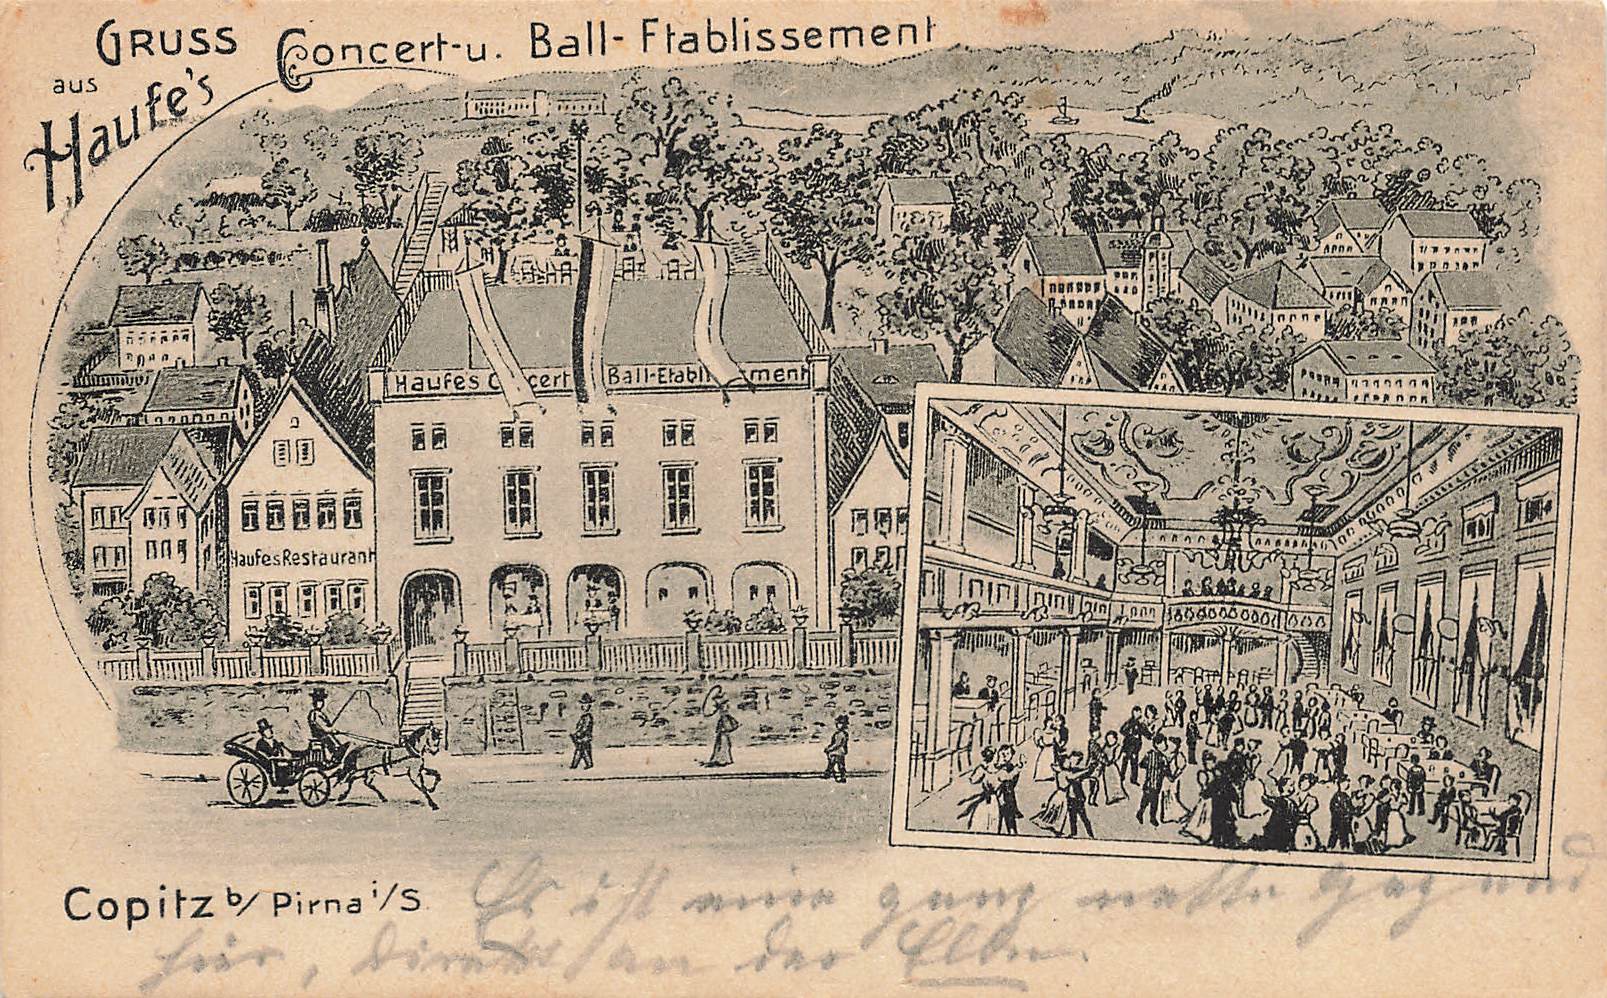 GRUSS
aus
Haufe's
Concert-u. Ball-Etablissement
Haufe's Concert Ball-Etablissement
Haufes Restaurant
Copitz b/ Pirna i/S.
Es ist eine ganz nette Gegend
hier, direkt an der Elbe.